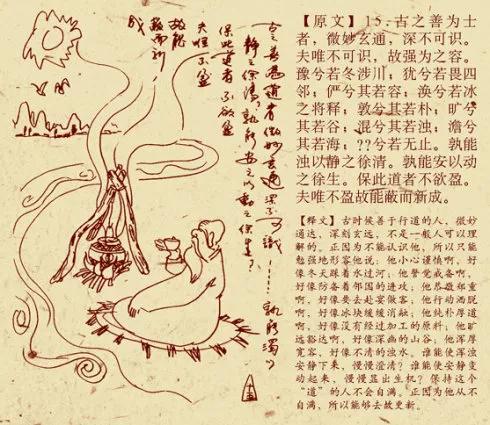 【原文】15.古之善为士
者，微妙玄通，深不可识。
夫唯不可识，故强为之容。
豫兮若冬涉川；犹兮若畏四
邻；俨兮其若容；涣兮若冰
之将释；敦兮其若朴；旷兮
其若谷；混兮其若浊；澹兮
其若海；??兮若无止。孰能
浊以静之徐清。孰能安以动
之徐生。保此道者不欲盈。
夫唯不盈故能蔽而新成。
【释文】古时候善于行道的人，微妙
通达，深刻玄远，不是一般人可以理
解的。正因为不能认识他，所以只能
勉强地形容他说；他小心谨慎啊，好
像冬天踩着水过河；他警觉戒备啊，
好像防备着邻国的进攻；他恭敬郑重
啊，好像要去赴宴做客；他行动洒脱
啊，好像冰块缓缓消融；他纯朴厚道
啊，好像没有经过加工的原料；他旷
远豁达啊，好像深幽的山谷；他浑厚
宽容，好像不清的浊水。谁能使浑浊
安静下来，慢慢澄清？谁能使安静变
动起来，慢慢显出生机？保持这个
“道”的人不会自满。正因为他从不
自满，所以能够去故更新。
古之善为道者微妙玄通深不可識……孰能濁以
静之徐清孰能安之以動之徐生
保此道者不欲盈
夫唯不盈
故能
蔽而新
成